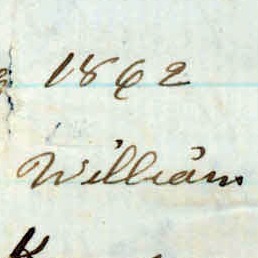 1862
William
K